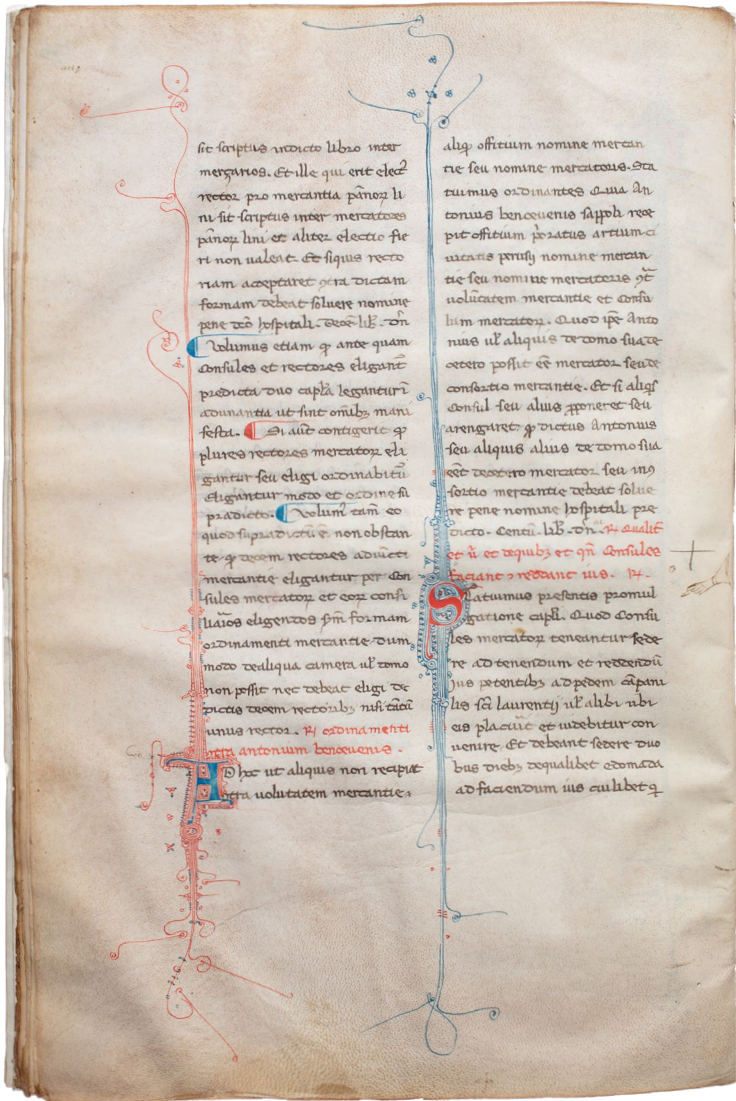 sit scriptus indicto libro inter
merçarios. Et ille qui erit elect᷒
rector pro mercantia pānoꝝ li
ni sit scriptus inter mercatores
pānoꝝ lini et aliter electio fie
ri non valeat. Et siquis recto
riam acceptaret ꝯtra dictam
formam debeat solvere nomine
pene dc̄o hospitali. decē lib̄. dn̄
Volumus etiam ꝙ ante quam
Consules et rectores eligant᷒
predicta duo capl̄a legantur ī
adunantia ut sint om̄ibꝫ mani
festa. Si aūt contigerit ꝙ
plures rectores mercatoꝝ eli
gantur seu eligi ordinabitur᷒
Eligantur modo et ordine su
pradicto. Volum᷒ tam̄ eo
quod supradictū ē non obstan
te ꝙ decem rectores adiūcti
mercantie eligantur per Con
sules mercatoꝝ et eoꝝ consi
liarios eligendos ꝑm formam
ordinamenti mercantie dum
modo dealiqua camera ul̓ domo
non possit nec debeat eligi de
pictis decem rectoribꝫ nisi tātū
unus rector. R͛ ordinamenti
ꝯtra antonium bencevenis.
AD hoc ut aliquis non recipiat
ꝯtra volūtatem mercantie
aliqḋ offitium nomine mercan
tie seu nomine mercatoris. Sta
tuimus ordinantes Quia An
tonius bencevenis sappoli rece
pit offitium p̄oratus artium ci
vitatis perusij nomine mercan
tie seu nomine mercatoris ꝯt᷒
volūtatem mercantie et Consu
lum mercatoꝝ. Quod ip̄e Anto
nius ul̓ aliquis de domo sua de
cetero possit eē mercator seu de
consortio mercantie. Et si aliq̓s
Consul seu alius ꝓponeret seu
arengaret ꝙ dictus Antonius
seu aliquis alius de domo sua
eēt decetero mercator seu in ꝯ
sortio mercantie debeat solve
re pene nomine hospitali pre
dicto. Centū. lib̄. dn̄. R͛ Qualit᷒
et ū et dequibꝫ et qn̄ Consules
faciant ⁊ reddant ius. R͛.
Statuimus presentis promul
gatione capl̓i. Quod Consu
les mercatoꝝ teneantur sede
re ad tenendum et reddendū
ius petentibꝫ ad pedem cāpani
lis sc̄i laurentij ul̓ alibi ubi
eis placuit᷒ et videbitur con
venire. Et debeant sedere duo
bus diebꝫ dequalibet edomada
ad faciendum ius cuilibet q̄